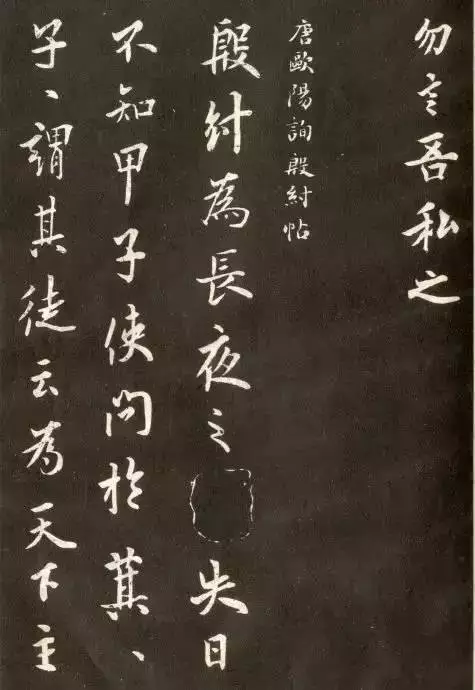 勿言吾私之
唐歐陽詢殷紂帖
殷紂為長夜之失日
不知甲子使問於箕、
子、謂其徒云為天下主